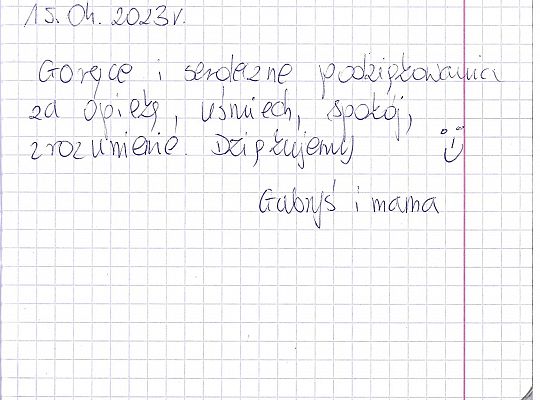 15.04.2023r.
Gorące i serdeczne podziękowania
za opiekę, uśmiech, spokój,
zrozumienie. Dziękujemy
Gabryś i mama